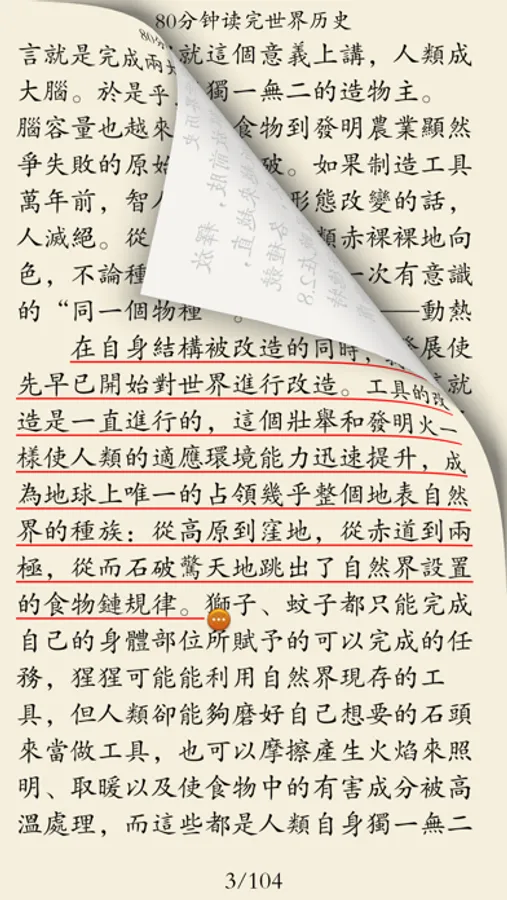 80分钟读完世界历史
言就是完成兩大 就這個意義上講，人類成
大腦。於是乎 獨一無二的造物主。
腦容量也越來 食物到發明農業顯然
爭失敗的原始 破。如果制造工具
萬年前，智人 形態改變的話，
人滅絕。從 類赤裸裸地向
色，不論種 一次有意識
的“同一個物種”。 ——動熱
在自身結構被改造的同時， 發展使
先早已開始對世界進行改造。工具的改 就
造是一直進行的，這個壯舉和發明火一
樣使人類的適應環境能力迅速提升，成
為地球上唯一的占領幾乎整個地表自然
界的種族：從高原到窪地，從赤道到兩
極，從而石破驚天地跳出了自然界設置
的食物鏈規律。獅子、蚊子都只能完成
自己的身體部位所賦予的可以完成的任
務，猩猩可能能利用自然界現存的工
具，但人類卻能夠磨好自己想要的石頭
來當做工具，也可以摩擦產生火焰來照
明、取暖以及使食物中的有害成分被高
溫處理，而這些都是人類自身獨一無二
3/104